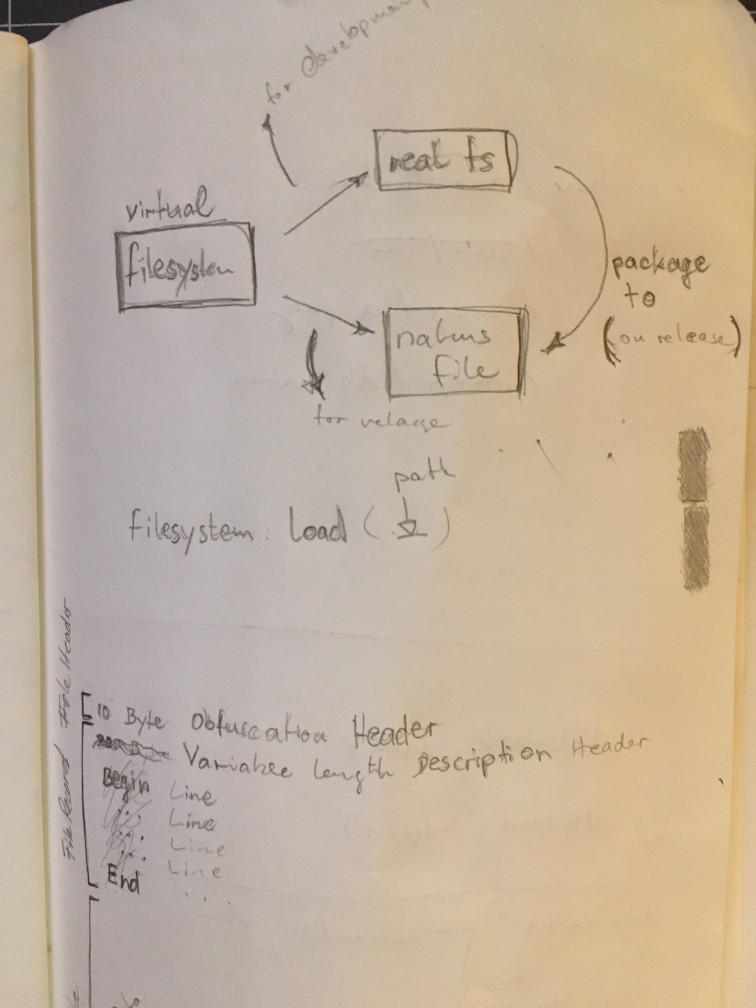 for development
real fs
virtual
filesystem
package
to
(on release)
natus
file
for release
path
filesystem : Load ( )
File Header
10 Byte Obfuscation Header
Variable length Description Header
File Record
Begin Line
... Line
... Line
End Line
....